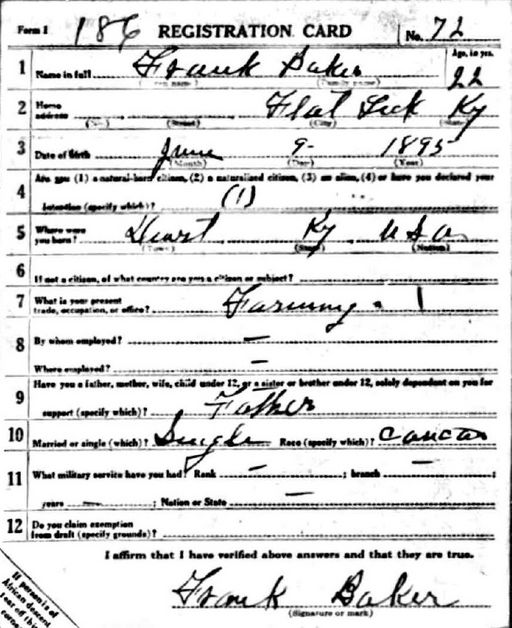 Form 1 186 REGISTRATION CARD No. 72
1 Name in full Frank Baker Age, in yrs. 22
(Given name) (Family name)
2 Home address Flat Lick Ky
(No.) (Street) (City) (State)
3 Date of birth June 9- 1895
(Month) (Day) (Year)
4 Are you (1) a natural-born citizen, (2) a naturalized citizen, (3) an alien, (4) or have you declared your
intention (specify which)? (1)
5 Where were you born? Ky USA
(Town) (State) (Nation)
6 If not a citizen, of what country are you a citizen or subject?
7 What is your present trade, occupation, or office? Farming
8 By whom employed? —
Where employed? —
9 Have you a father, mother, wife, child under 12, or a sister or brother under 12, solely dependent on you for
support (specify which)? Father
10 Married or single (which)? Single Race (specify which)?
11 What military service have you had? Rank — ; branch — ;
years — ; Nation or State —
12 Do you claim exemption from draft (specify grounds)?
I affirm that I have verified above answers and that they are true.
Frank Baker
(Signature or mark)
If person is of
African descent
tear off this